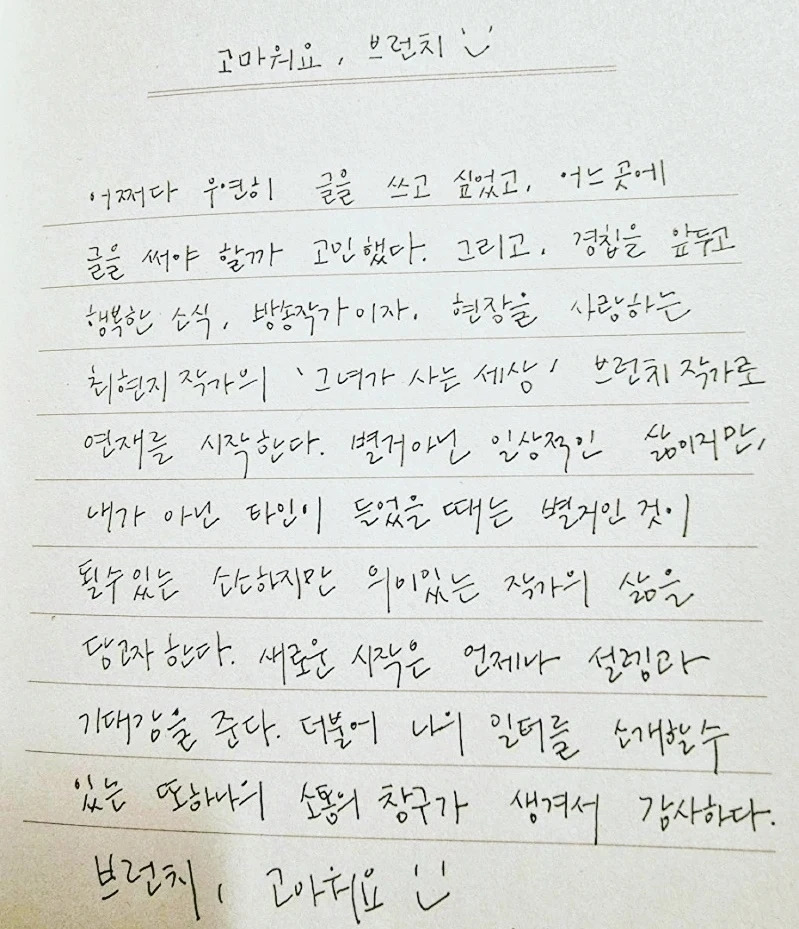 고마워요, 브런치 :)
어쩌다 우연히 글을 쓰고 싶었고, 어느 곳에
글을 써야 할까 고민했다. 그리고, 경칩을 앞두고
행복한 소식, 방송작가이자, 현장을 사랑하는
최현지 작가의 '그녀가 사는 세상' 브런치 작가로
연재를 시작한다. 별거아닌 일상적인 삶이지만,
내가 아닌 타인이 들었을 때는 별거인 것이
될수있는 소소하지만 의미있는 작가의 삶을
담고자 한다. 새로운 시작은 언제나 설렘과
기대감을 준다. 더불어 나의 일터를 소개할수
있는 또하나의 소통의 창구가 생겨서 감사하다.
브런치, 고마워요 :)